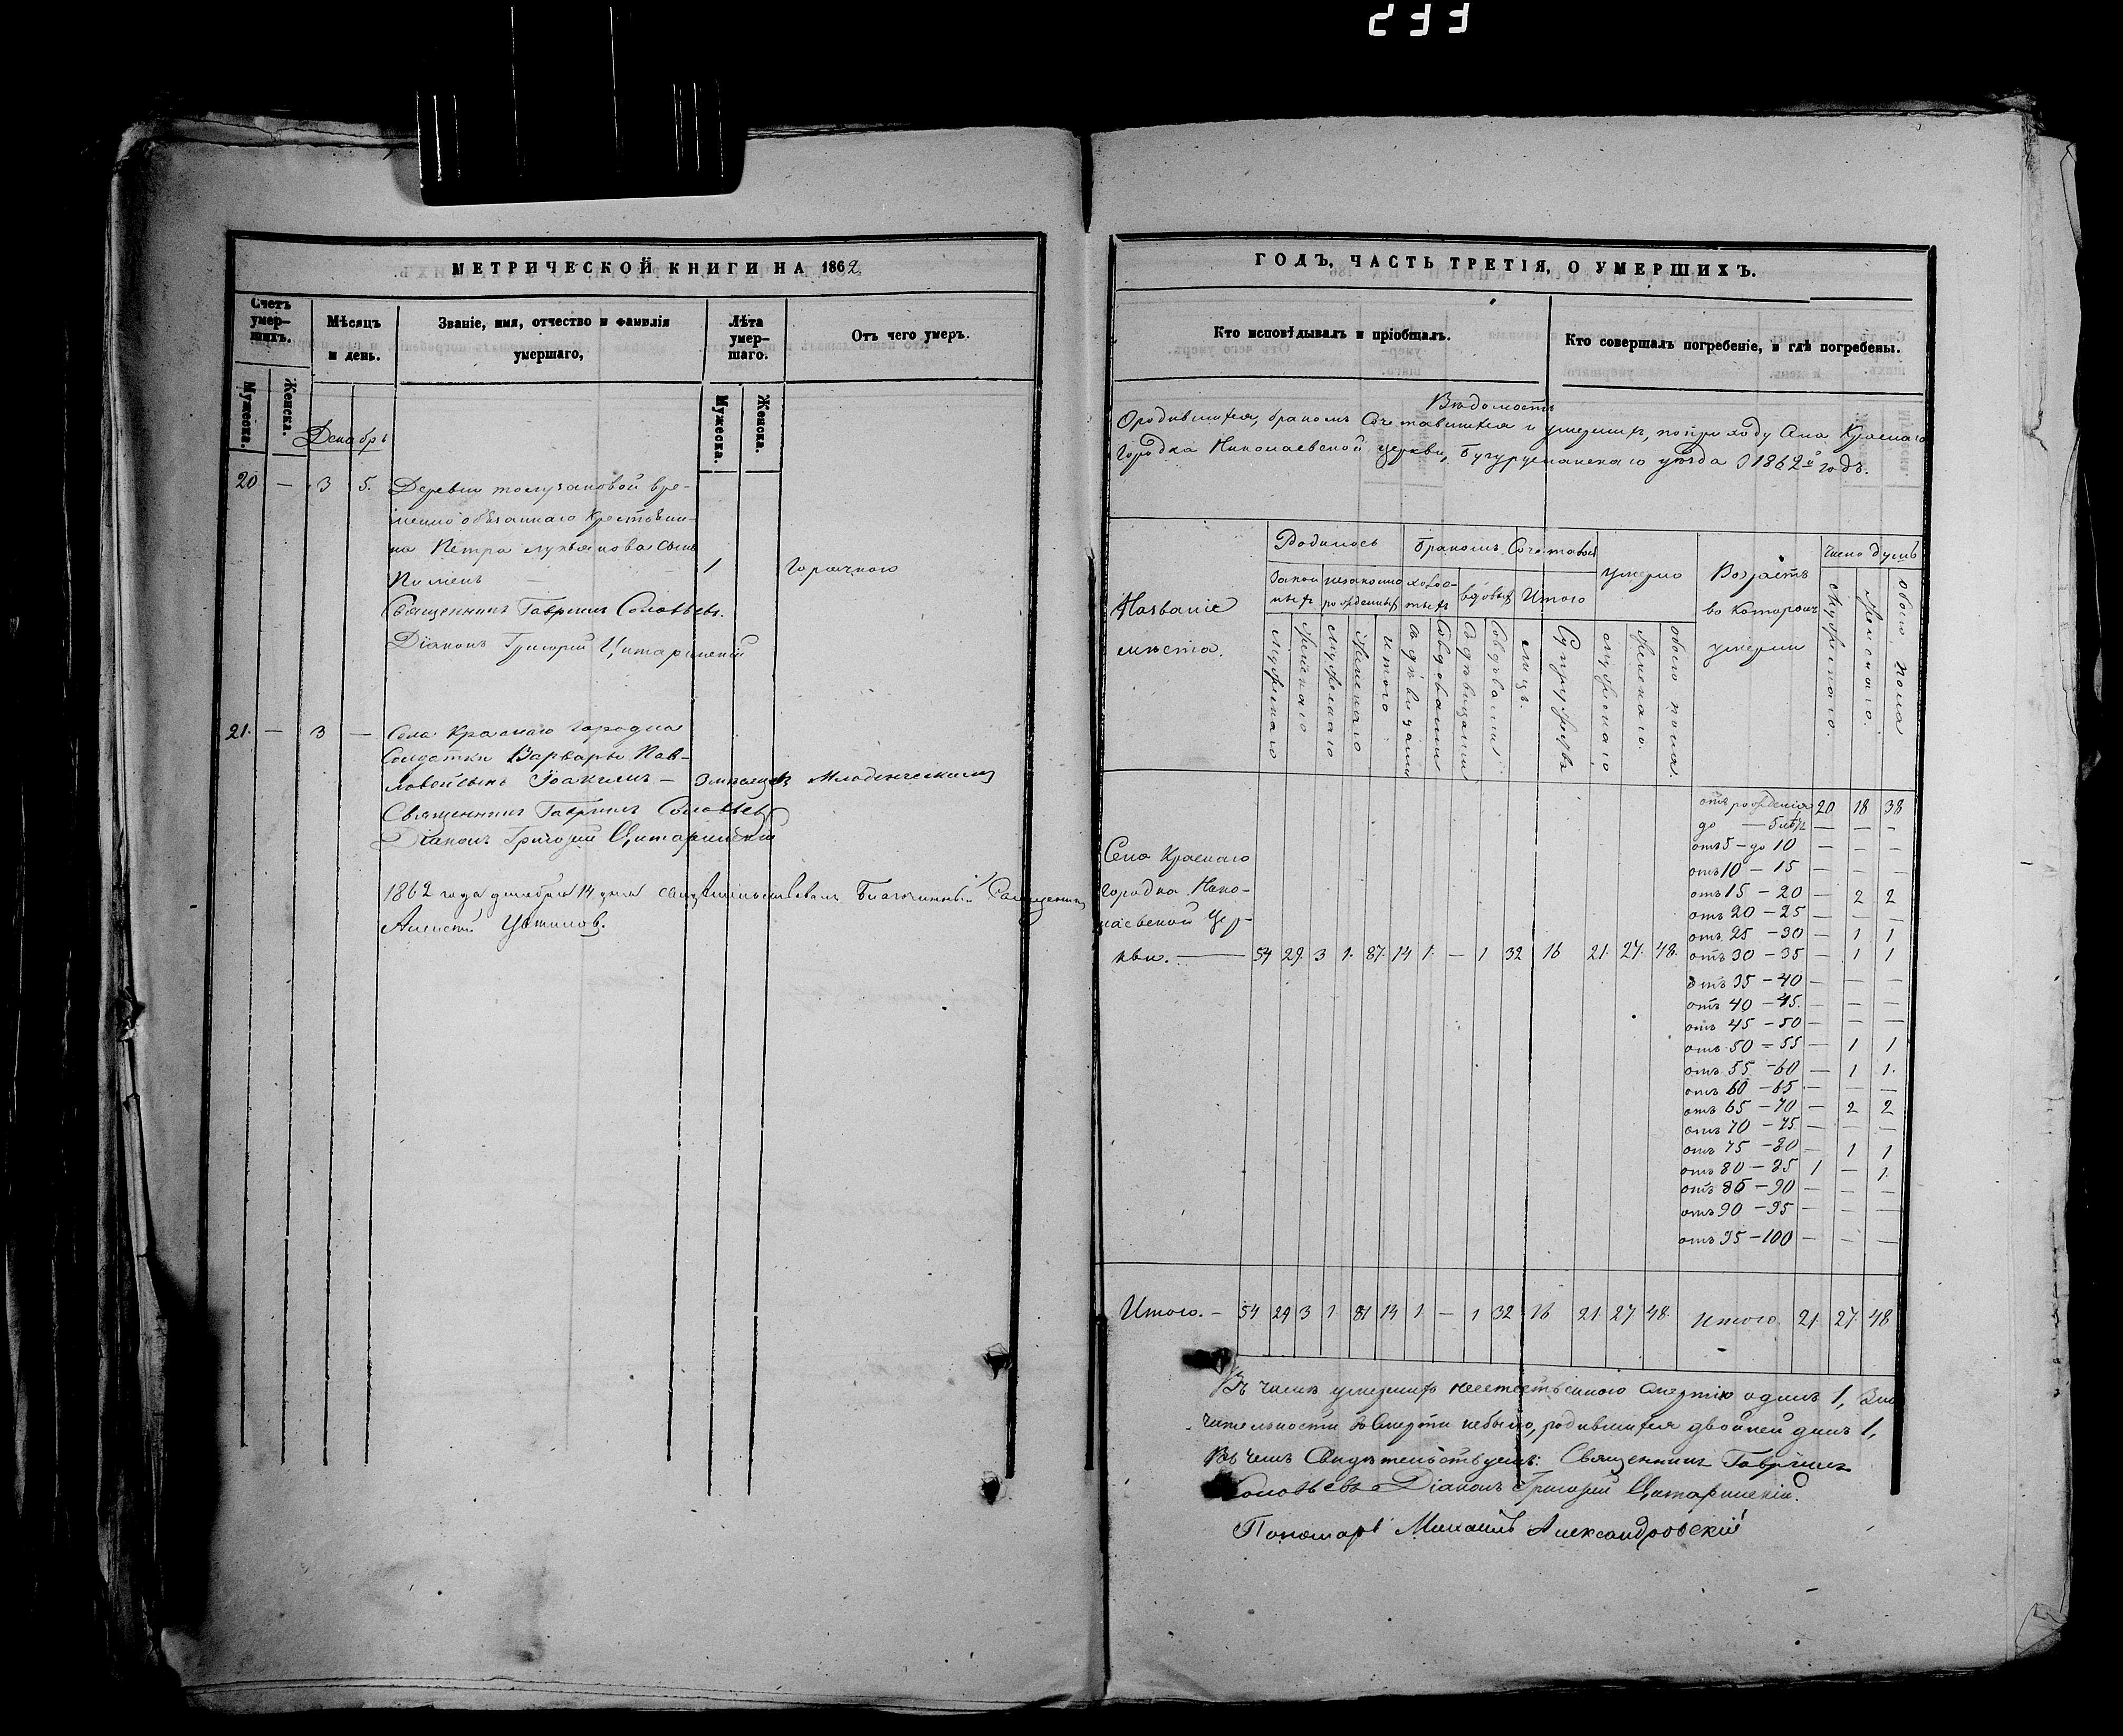 233
МЕТРИЧЕСКОЙ КНИГИ НА 1862
Счетъ умер-шихъ.
Мѣсяцъ и день.
Званіе, имя, отчество и фамилія умершаго,
Лѣта умер-шаго.
Отъ чего умеръ.
Мужеска.
Женска.
Мужеска.
Женска.
Декабрь
20 — 3 5. Деревни
менно обязаннаго Крестьяни-
на Петра Лукьянова сынъ
Пименъ 1 Горячкою
Священникъ Гавріилъ Соловьевъ.
Діаконъ Григорій
21. — 3 — Села Краснаго Городка
Солдатки Варвары Пав-
ловой сынъ Іоакимъ — 3 мѣсяцев Младенческою
Священникъ Гавріилъ Соловьевъ
Діаконъ Григорій
1862 года декабря 14 дня свидѣтельствовалъ Благочинный Священникъ
Алексѣй
ГОДЪ, ЧАСТЬ ТРЕТІЯ, О УМЕРШИХЪ.
Кто исповѣдывалъ и пріобщалъ.
Кто совершалъ погребеніе, и гдѣ погребены.
Вѣдомость
О родившихся, бракомъ сочетавшихся и умершихъ, по приходу Села Краснаго
Городка Николаевской церкви, Бугурусланскаго уѣзда за 1862й годъ.
Названіе мѣста.
Родилось
Бракомъ Сочеталось
умерло
Возрастъ во которомъ умерли
Число душъ
Закон-ныхъ
незаконно рожденныхъ
холос-тыхъ
вдовыхъ
Итого
Мужескаго
Женскаго
Мужескаго
Женскаго
Итого
Съ дѣвицами
Со вдовами
Съ дѣвицами
Со вдовами
лицъ.
Супружествъ
Мужескаго
Женскаго.
обоего пола.
Мужескаго.
Женскаго.
обоего пола
отъ рожденія 20 18 38
до — 5 лѣтъ — — —
отъ 5 — до 10 — — —
отъ 10 — 15 — — —
отъ 15 — 20 — 2 2
отъ 20 — 25 — — —
отъ 25 — 30 — 1 1
отъ 30 — 35 — 1 1
отъ 35 — 40 — — —
отъ 40 — 45 — — —
отъ 45 — 50 — — —
отъ 50 — 55 — 1 1
отъ 55 — 60 — 1 1.
отъ 60 — 65 — — —
отъ 65 — 70 — 2 2
отъ 70 — 75 — — —
отъ 75 — 80 — 1 1
отъ 80 — 85 1 — 1
отъ 85 — 90 — — —
отъ 90 — 95 — — —
отъ 95 — 100 — — —
Села Краснаго
Городка Нико-
лаевской Цер-
кви. — 54 29 3 1. 87. 14 1. — 1 32 16 21. 27. 48.
Итого. — 54 29 3 1 87 14 1 — 1 32 16 21 27 48 Итого 21. 27. 48
Въ числѣ умершихъ неестественною Смертію одинъ 1, Зна
чительности въ Смерти не было, родившихся двойней одинъ 1,
Въ чемъ Свидѣтельствуемъ: Священникъ Гавріилъ
Соловьевъ Діаконъ Григорій
Пономарь Михаилъ Александровскій